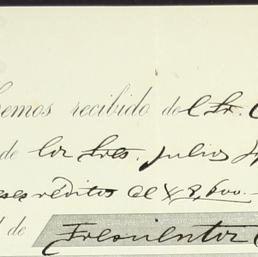 hemos recibido del Sr.
de los Sres. Julios
réditos al 8,600.-
de Trescientos